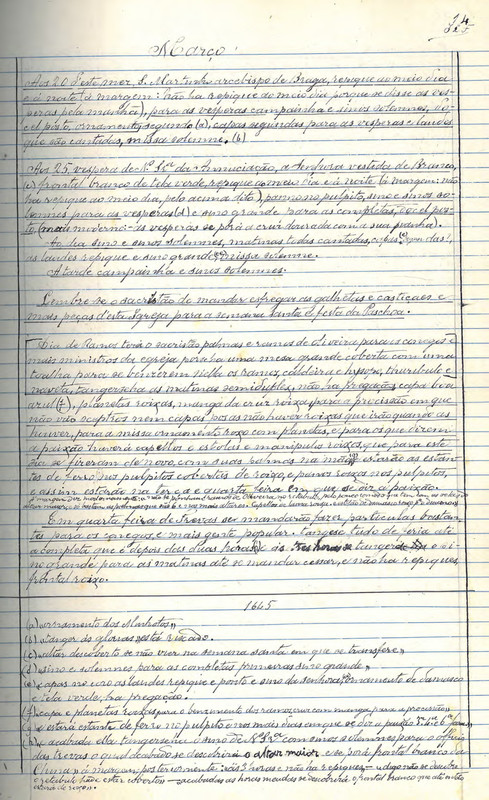 14
Março
Aos 20 d'este mez, S. Martinho arcebispo de Braga, repique ao meio dia
e á noite (á margem: não ha repique ao meio dia porque se disse as ves-
peras pela manhã), para as vesperas campainha e sinos solemnes, do-
cel posto, ornamento segundo (a), capas segundas para as vesperas e laudes
que são cantadas, missa solemne. (b)
Aos 25 vespera de N. Sra da Annunciação, a Senhora vestida de Branco,
(c) frontal branco de tela verde, repique ao meio dia e á noite (á margem: não
ha repique ao meio dia, pelo acima dito), panno no pulpito, sino e sinos so-
lemnes para as vesperas (d) e sino grande para as completas, docel pos-
to (mais moderno - ás vesperas se porá a cruz dourada com a sua manga).
Ao dia sino e sinos solemnes, matinas todas cantadas, capas (e) segundas,
as laudes repique e sino grande, missa solemne.
A tarde campainha e sinos solemnes.
Lembre-se o sacristão de mandar esfregar as galhetas e castiçaes e
mais peças d'esta Igreja para a semana santa e festa da Paschoa.
Dia de Ramos terá o sacristão palmas e ramos de oliveira para os conegos e
mais ministros da egreja, porá ha uma mesa grande coberta com uma
toalha para se benzerem nella os ramos, caldeira e hysope, thuribulo e
naveta, tanger-se-ha as matinas semidobles, não ha pregação, capa boa
azul (f), planetas roixas, manga da cruz roixa para a procissão em que
não vão ceptros nem capas por as não haver roixas que irão quando as
houver, para a missa ornamento roxo com planetas, e para os que dizem
a paixão haverá capellos e estolas e manipulos roixos, que para este
dia se fizeram de novo, com suas palmas na mão (g) estarão as estan-
tes de ferro nos pulpitos cobertos de roixo, e panos roixos nos pulpitos,
e assim estarão na terça e quarta feira em que se diz a paixão.
Em quarta feira de trevas se mandarão fazer particulas bastan-
tes para os conegos e mais gente popular. Tange-se tudo de feria até
a completa que é depois das duas horas (h) e ás tres horas se tange o si-
no grande para as matinas até se mandar cessar, e não ha repiques,
frontal roixo.
1645
(a) ornamento dos Machotos,,
(b) tanger ás glorias,, está riscado.
(c) altar descoberto se não vier na semana santa em que se transfere,,
(d) sino e solemnes para as completas primeiras sino grande,,
(e) capas no coro as laudes repique e ponto e sino da senhora, ornamento de damasco
e tela verde, ha pregação.
(f) capa e planetas roixas para o benzimento dos ramos, cruz com manga para a procissão,,
(g) e estará estante de ferro no pulpito e nos mais dias em que se diz a paixão 3ª 4ª e 6ª feira,,
(h) e acabada ella tanger-se-ha o sino de N. Sra com sinos solemnes para o officio
das trevas o qual acabado se descobrirá o altar maior e se porá frontal branco da
China,, á margem, posteriormente: ás 3 horas e não ha repiques,, e logo não se descobre
o retabulo hão de estar cobertos - acabadas as horas meudas se descobrirá o frontal branco que até então
estará de roixo.